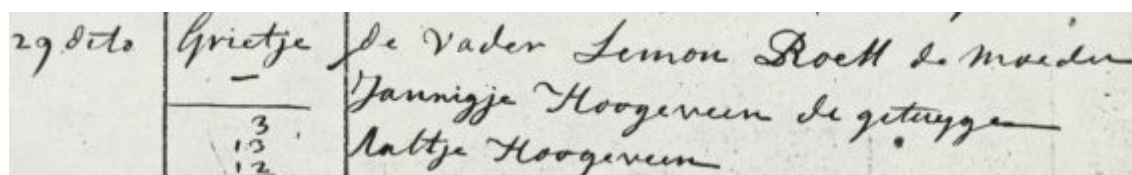 29 dito Grietje de vader Lemon Roell de moeder
— Jannigje Hoogeveen de getuygge
3 Aaltje Hoogeveen
13
12